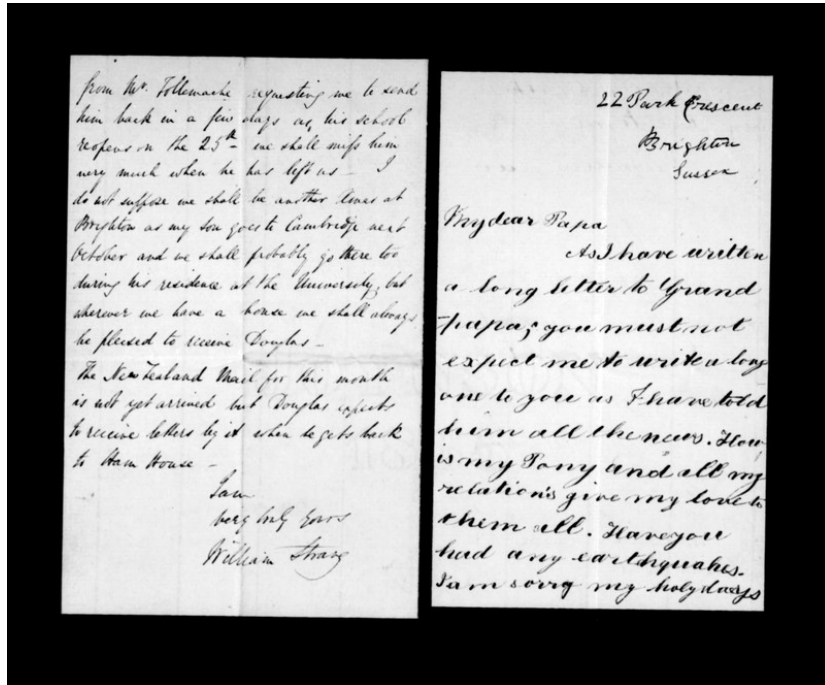 from Mr. Tollemache requesting me to send
him back in a few days as, his school
reopens on the 25th we shall miss him
very much when he has left us – I
do not suppose we shall be another Xmas at
Brighton as my son goes to Cambridge next
October and we shall probably go there too
during his residence at the University, but
wherever we have a house we shall always
be pleased to receive Douglas –
The New Zealand Mail for this month
is not yet arrived but Douglas expects
to receive letters by it when he gets back
to Ham House –
I am
very truly yours
William Strang
22 Park Crescent
Brighton
Sussex
My dear Papa
As I have written
a long letter to Grand
papa, you must not
expect me to write a long
one to you as I have told
him all the news. How
is my Pony and all my
relations give my love to
them all. Have you
had any earthquakes.
I am sorry my holydays